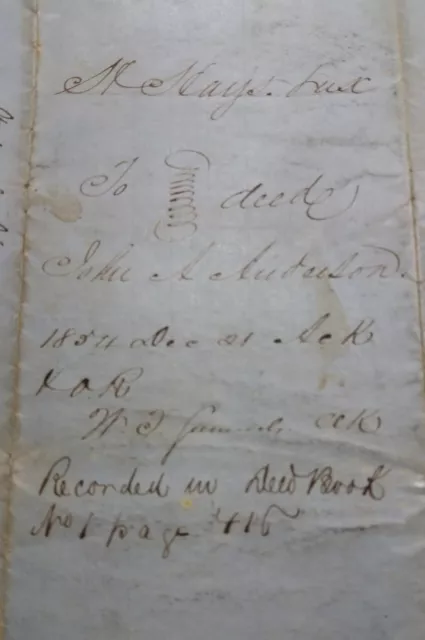 Hays
To deed
John A Anderson
1854 Dec 21 Ack
& O R
W. T. Samuels Clk
Recorded in Deed Book
No 1 page 416